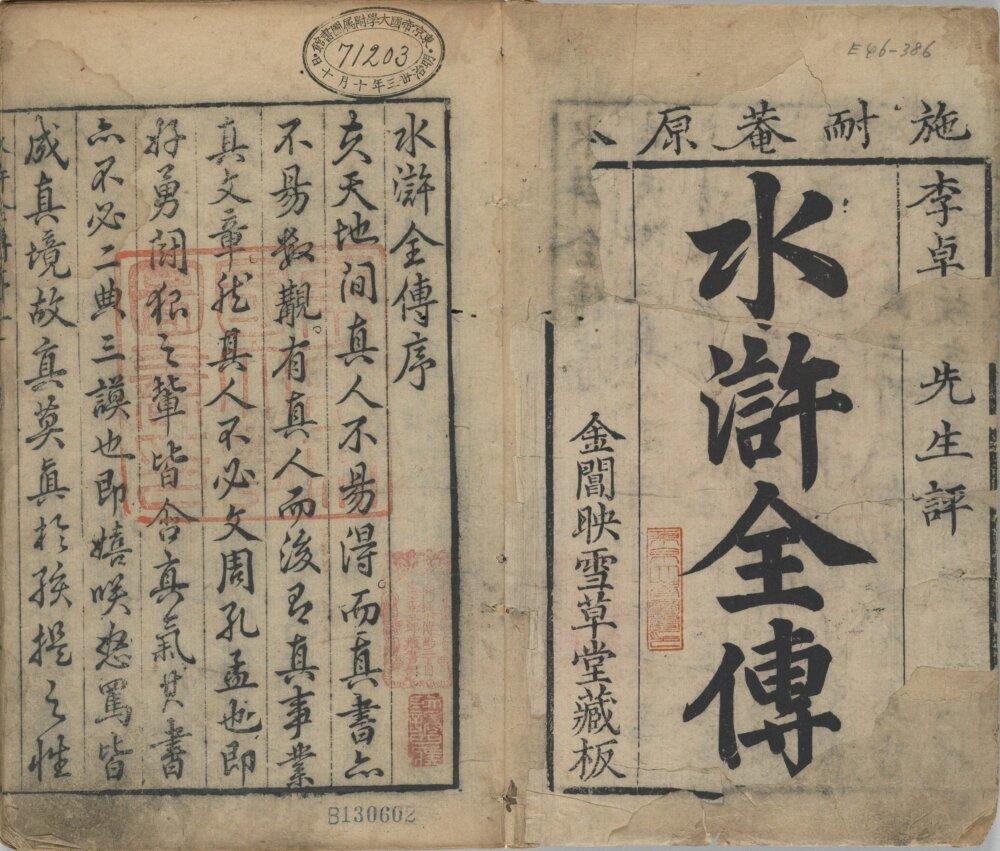 E46-386
施耐菴原
李卓 先生評
水滸全傳
金閶映雪草堂藏板
東京帝國大學附屬圖書館
71203
明治卅三年十月十日
水滸全傳序
夫天地間真人不易得而真書亦
不易數覯。有真人而後有真事業
真文章然其人不必文周孔孟也即
好勇鬪狠之輩皆含真氣其書
亦不必二典三謨也即嬉咲怒罵皆
成真境故真莫真於孩提之性
B130602